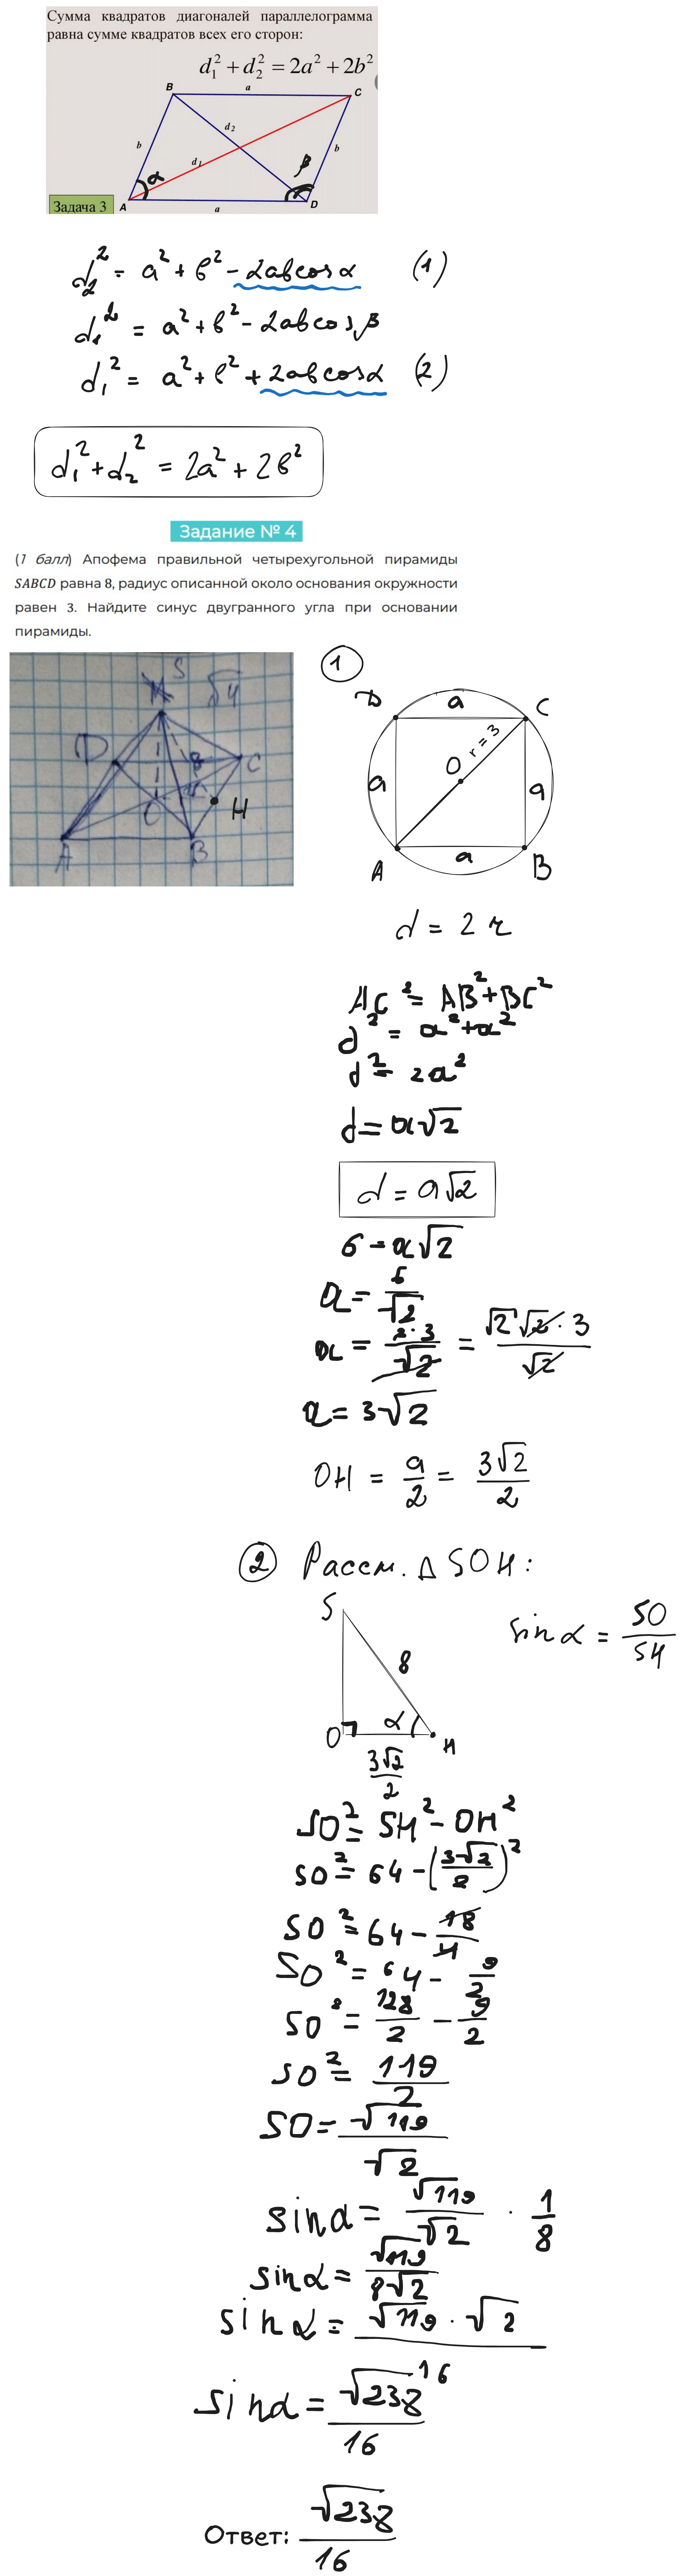 Сумма квадратов диагоналей параллелограмма
равна сумме квадратов всех его сторон:
d₁² + d₂² = 2a² + 2b²
B a C
b d₂ d₁ b
α β
A a D
Задача 3
d₂² = a² + b² - 2ab cos α (1)
d₁² = a² + b² - 2ab cos β
d₁² = a² + b² + 2ab cos α (2)
d₁² + d₂² = 2a² + 2b²
Задание № 4
(1 балл) Апофема правильной четырехугольной пирамиды
SABCD равна 8, радиус описанной около основания окружности
равен 3. Найдите синус двугранного угла при основании
пирамиды.
S
M √4
D 8 C
O H
A B
1
D a C
a O r = 3 a
A a B
d = 2 r
AC² = AB² + BC²
d² = a² + a²
d² = 2a²
d = a√2
d = a√2
6 = a√2
a = 6/√2
a = 2·3/√2 = √2√2·3/√2
a = 3√2
OH = a/2 = 3√2/2
2 Рассм. Δ SOH:
S
8
sin α = SO/SH
O α H
3√2/2
SO² = SH² - OH²
SO² = 64 - (3√2/2)²
SO² = 64 - 18/4
SO² = 64 - 9/2
SO² = 128/2 - 9/2
SO² = 119/2
SO = √119/√2
sin α = √119/√2 · 1/8
sin α = √119/8√2
sin α = √119 · √2
16
sin α = √238/16
Ответ: √238/16